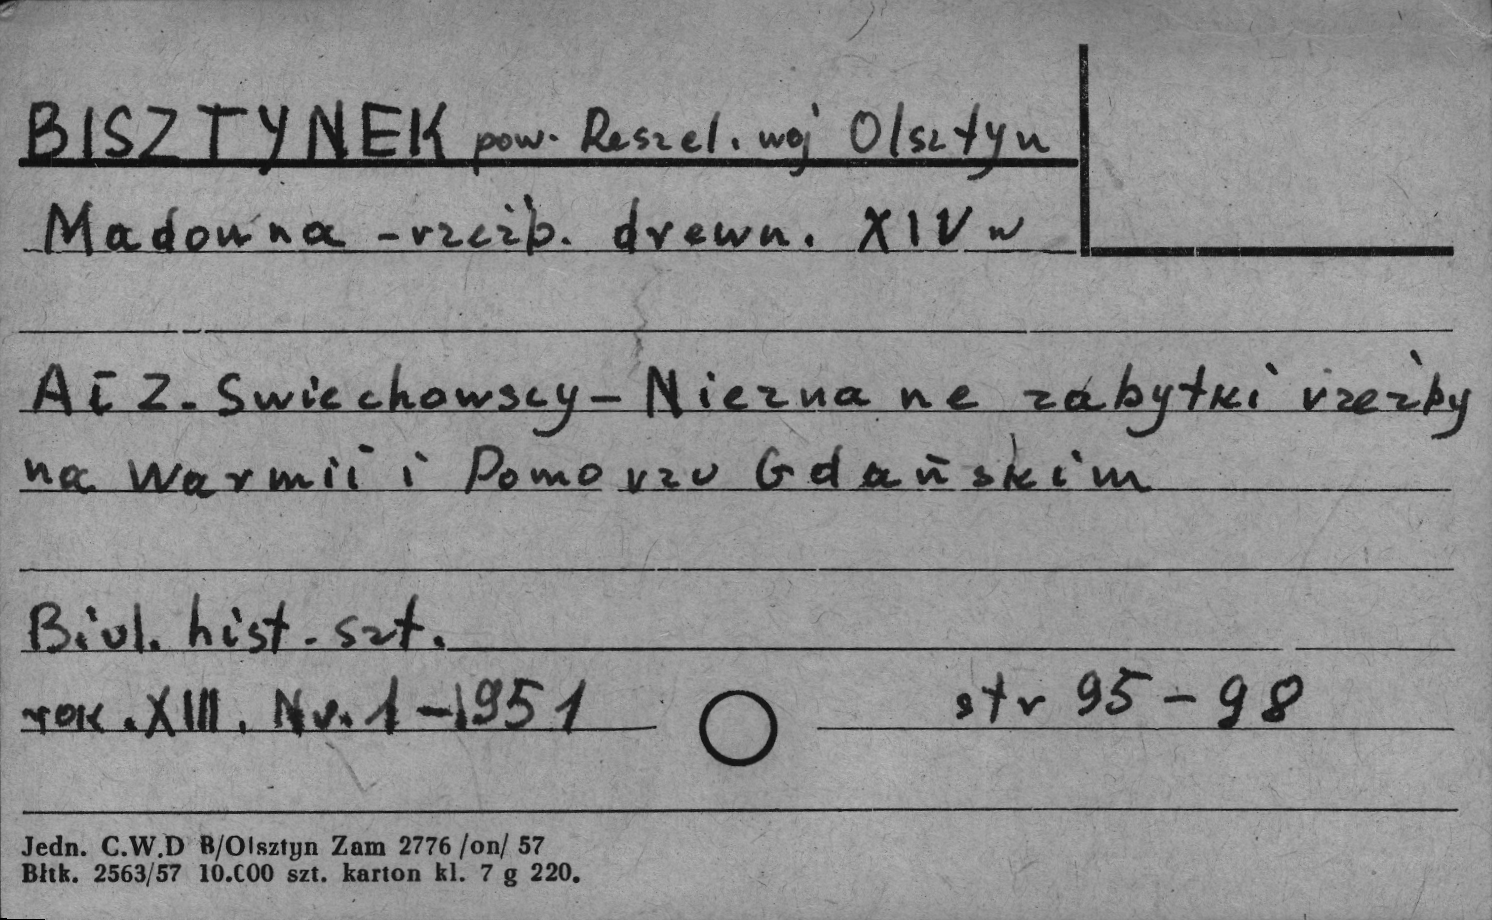 BISZTYNEK pow. Reszel. woj Olsztyn
Madonna - rzeźb. drewn. XIV w
A i Z. Swiechowscy - Nieznane zabytki rzeźby
na Warmii i Pomorzu Gdańskim
Biul. hist. szt.
rok. XIII. Nr. 1 - 1951 str 95 - 98
Jedn. C.W.D B/Olsztyn Zam 2776 /on/ 57
Błtk. 2563/57 10.000 szt. karton kl. 7 g 220.